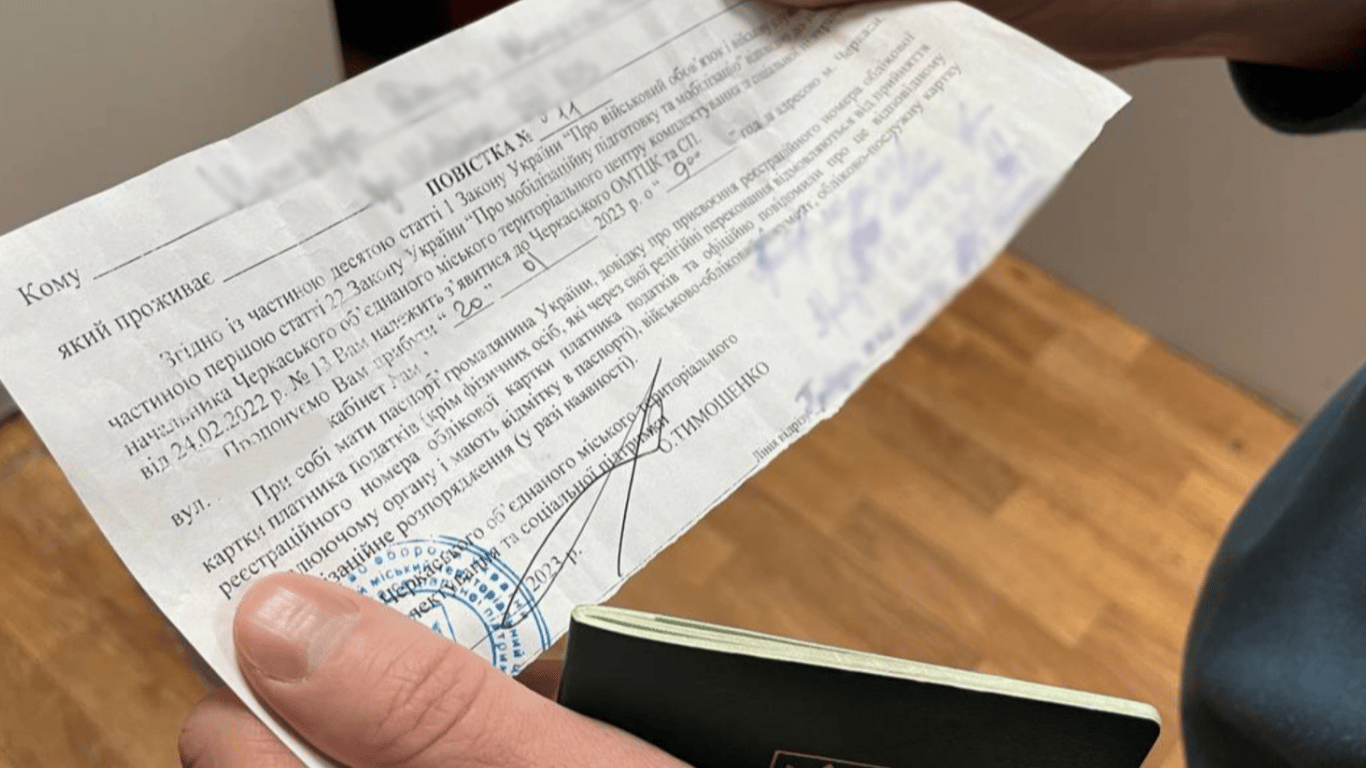 Кому
який проживає
ПОВІСТКА № 11
Згідно із частиною десятою статті 1 Закону України “Про військовий обов’язок і
частиною першою статті 22 Закону України “Про мобілізаційну підготовку та мобілізацію”
начальника Черкаського об’єднаного міського територіального центру комплектування та соціальної
від 24.02.2022 р. № 13 Вам належить з’явитися до Черкаського ОМТЦК та СП.
Пропонуємо Вам прибути “ 20 ” 01 2023 р. о “ 9⁰⁰ ” год. за адресою м. Черкаси,
вул. кабінет
При собі мати паспорт громадянина України, довідку про присвоєння реєстраційного номера облікової
картки платника податків (крім фізичних осіб, які через свої релігійні переконання відмовляються від прийняття
реєстраційного номера облікової картки платника податків та офіційно повідомили про це відповідному
органу і мають відмітку в паспорті), військово-обліковий документ, обліково-послужну картку
розпорядження (у разі наявності).
Черкаського об’єднаного міського територіального
та соціальної підтримки
ТИМОШЕНКО
2023 р.
Лінія